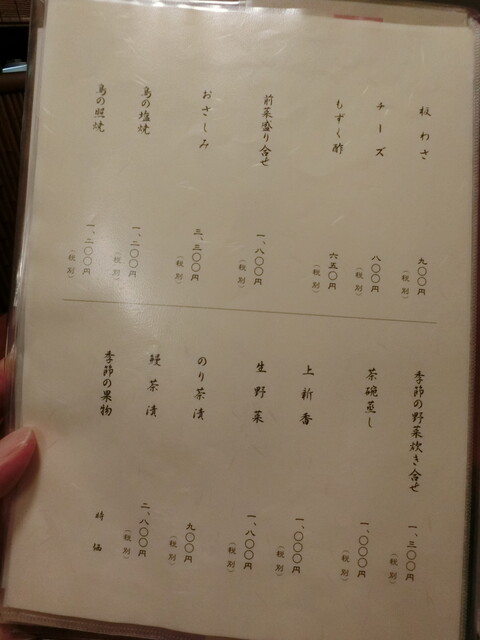 板わさ
九〇〇円
（税別）
チーズ
八〇〇円
（税別）
もずく酢
六五〇円
（税別）
前菜盛り合せ
一、八〇〇円
（税別）
おさしみ
三、三〇〇円
（税別）
鳥の塩焼
一、二〇〇円
（税別）
鳥の照焼
一、二〇〇円
（税別）
季節の野菜炊き合せ
一、三〇〇円
（税別）
茶碗蒸し
一、〇〇〇円
（税別）
上新香
一、〇〇〇円
（税別）
生野菜
一、八〇〇円
（税別）
のり茶漬
九〇〇円
（税別）
鰻茶漬
二、八〇〇円
（税別）
季節の果物
時価